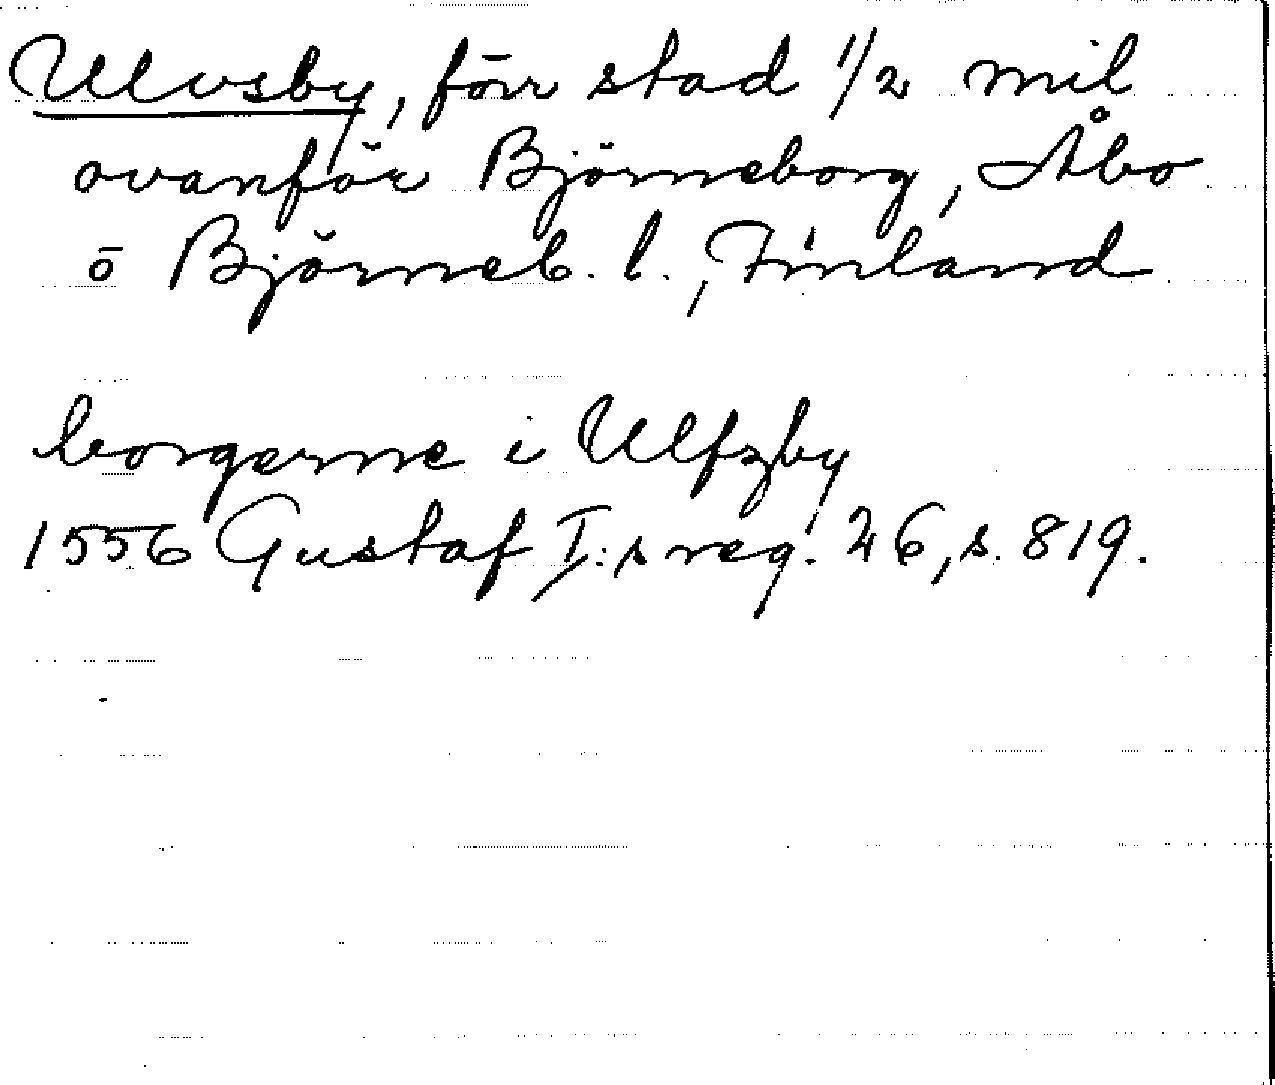 Ulvsby, förr stad 1/2 mil
ovanför Björneborg, Åbo
o Björneb. l., Finland
borgerne i Ulfzby
1556 Gustaf I:s reg. 26, s. 819.